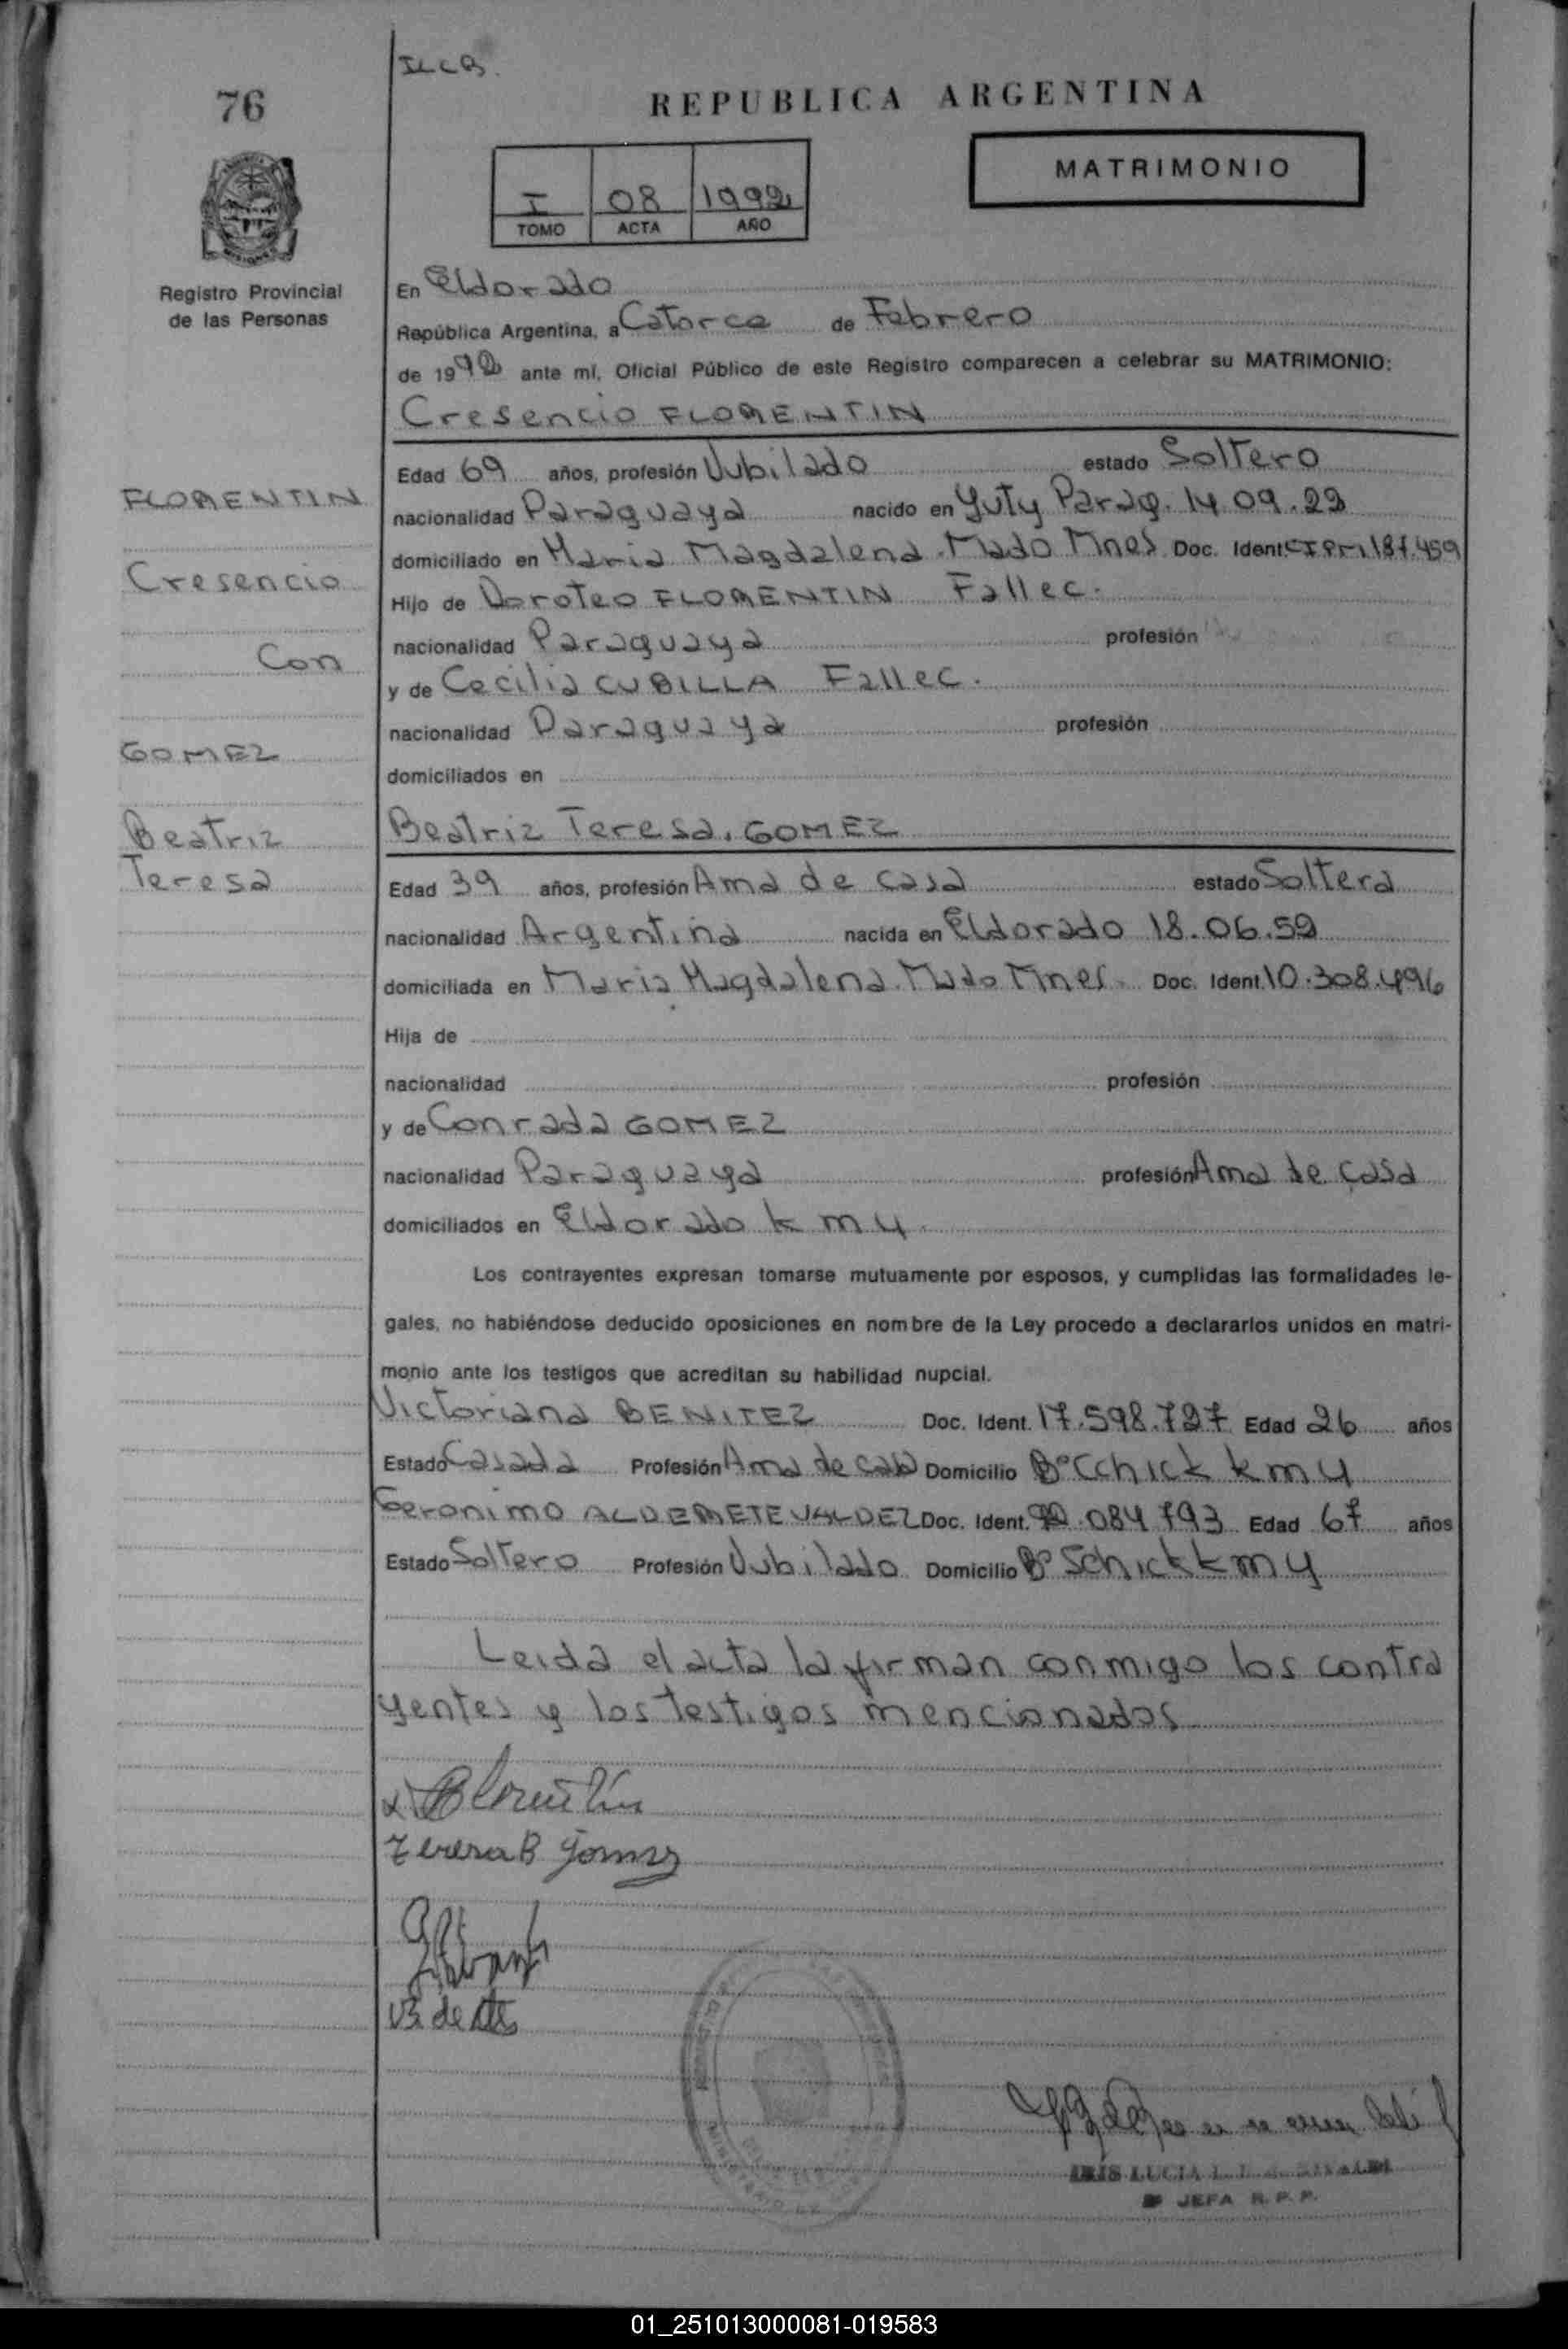 76
REPUBLICA ARGENTINA
MATRIMONIO
I 08 1992
TOMO ACTA AÑO
Registro Provincial
de las Personas
En Eldorado
República Argentina, a Catorce de Febrero
de 1992 ante mí, Oficial Público de este Registro comparecen a celebrar su MATRIMONIO:
Cresencio FLORENTIN
FLORENTIN
Cresencio
Con
GOMEZ
Beatriz
Teresa
Edad 69 años, profesión Jubilado estado Soltero
nacionalidad Paraguaya nacido en Yuty Parag. 14.09.22
domiciliado en Maria Magdalena. Mado Mnes Doc. Ident. 187.459
Hijo de Doroteo FLORENTIN Fallec.
nacionalidad Paraguaya profesión
y de Cecilia CUBILLA Fallec.
nacionalidad Paraguaya profesión
domiciliados en
Beatriz Teresa. GOMEZ
Edad 39 años, profesión Ama de casa estado Soltera
nacionalidad Argentina nacida en Eldorado 18.06.52
domiciliada en Maria Magdalena. Mado Mnes. Doc. Ident. 10.308.496
Hija de
nacionalidad profesión
y de Conrada GOMEZ
nacionalidad Paraguaya profesión Ama de casa
domiciliados en Eldorado km 4
Los contrayentes expresan tomarse mutuamente por esposos, y cumplidas las formalidades le-
gales, no habiéndose deducido oposiciones en nombre de la Ley procedo a declararlos unidos en matri-
monio ante los testigos que acreditan su habilidad nupcial.
Victoriana BENITEZ Doc. Ident. 17.598.727 Edad 26 años
Estado Casada Profesión Ama de casa Domicilio B° Cchick km 4
Geronimo ALDERETE VALDEZ Doc. Ident. 92.084.793 Edad 67 años
Estado Soltero Profesión Jubilado Domicilio B° Schick km 4
Leida el acta la firman conmigo los contra
yentes y los testigos mencionados
Teresa B Gomez
IRIS LUCIA
JEFA R. P. P.
01_251013000081-019583